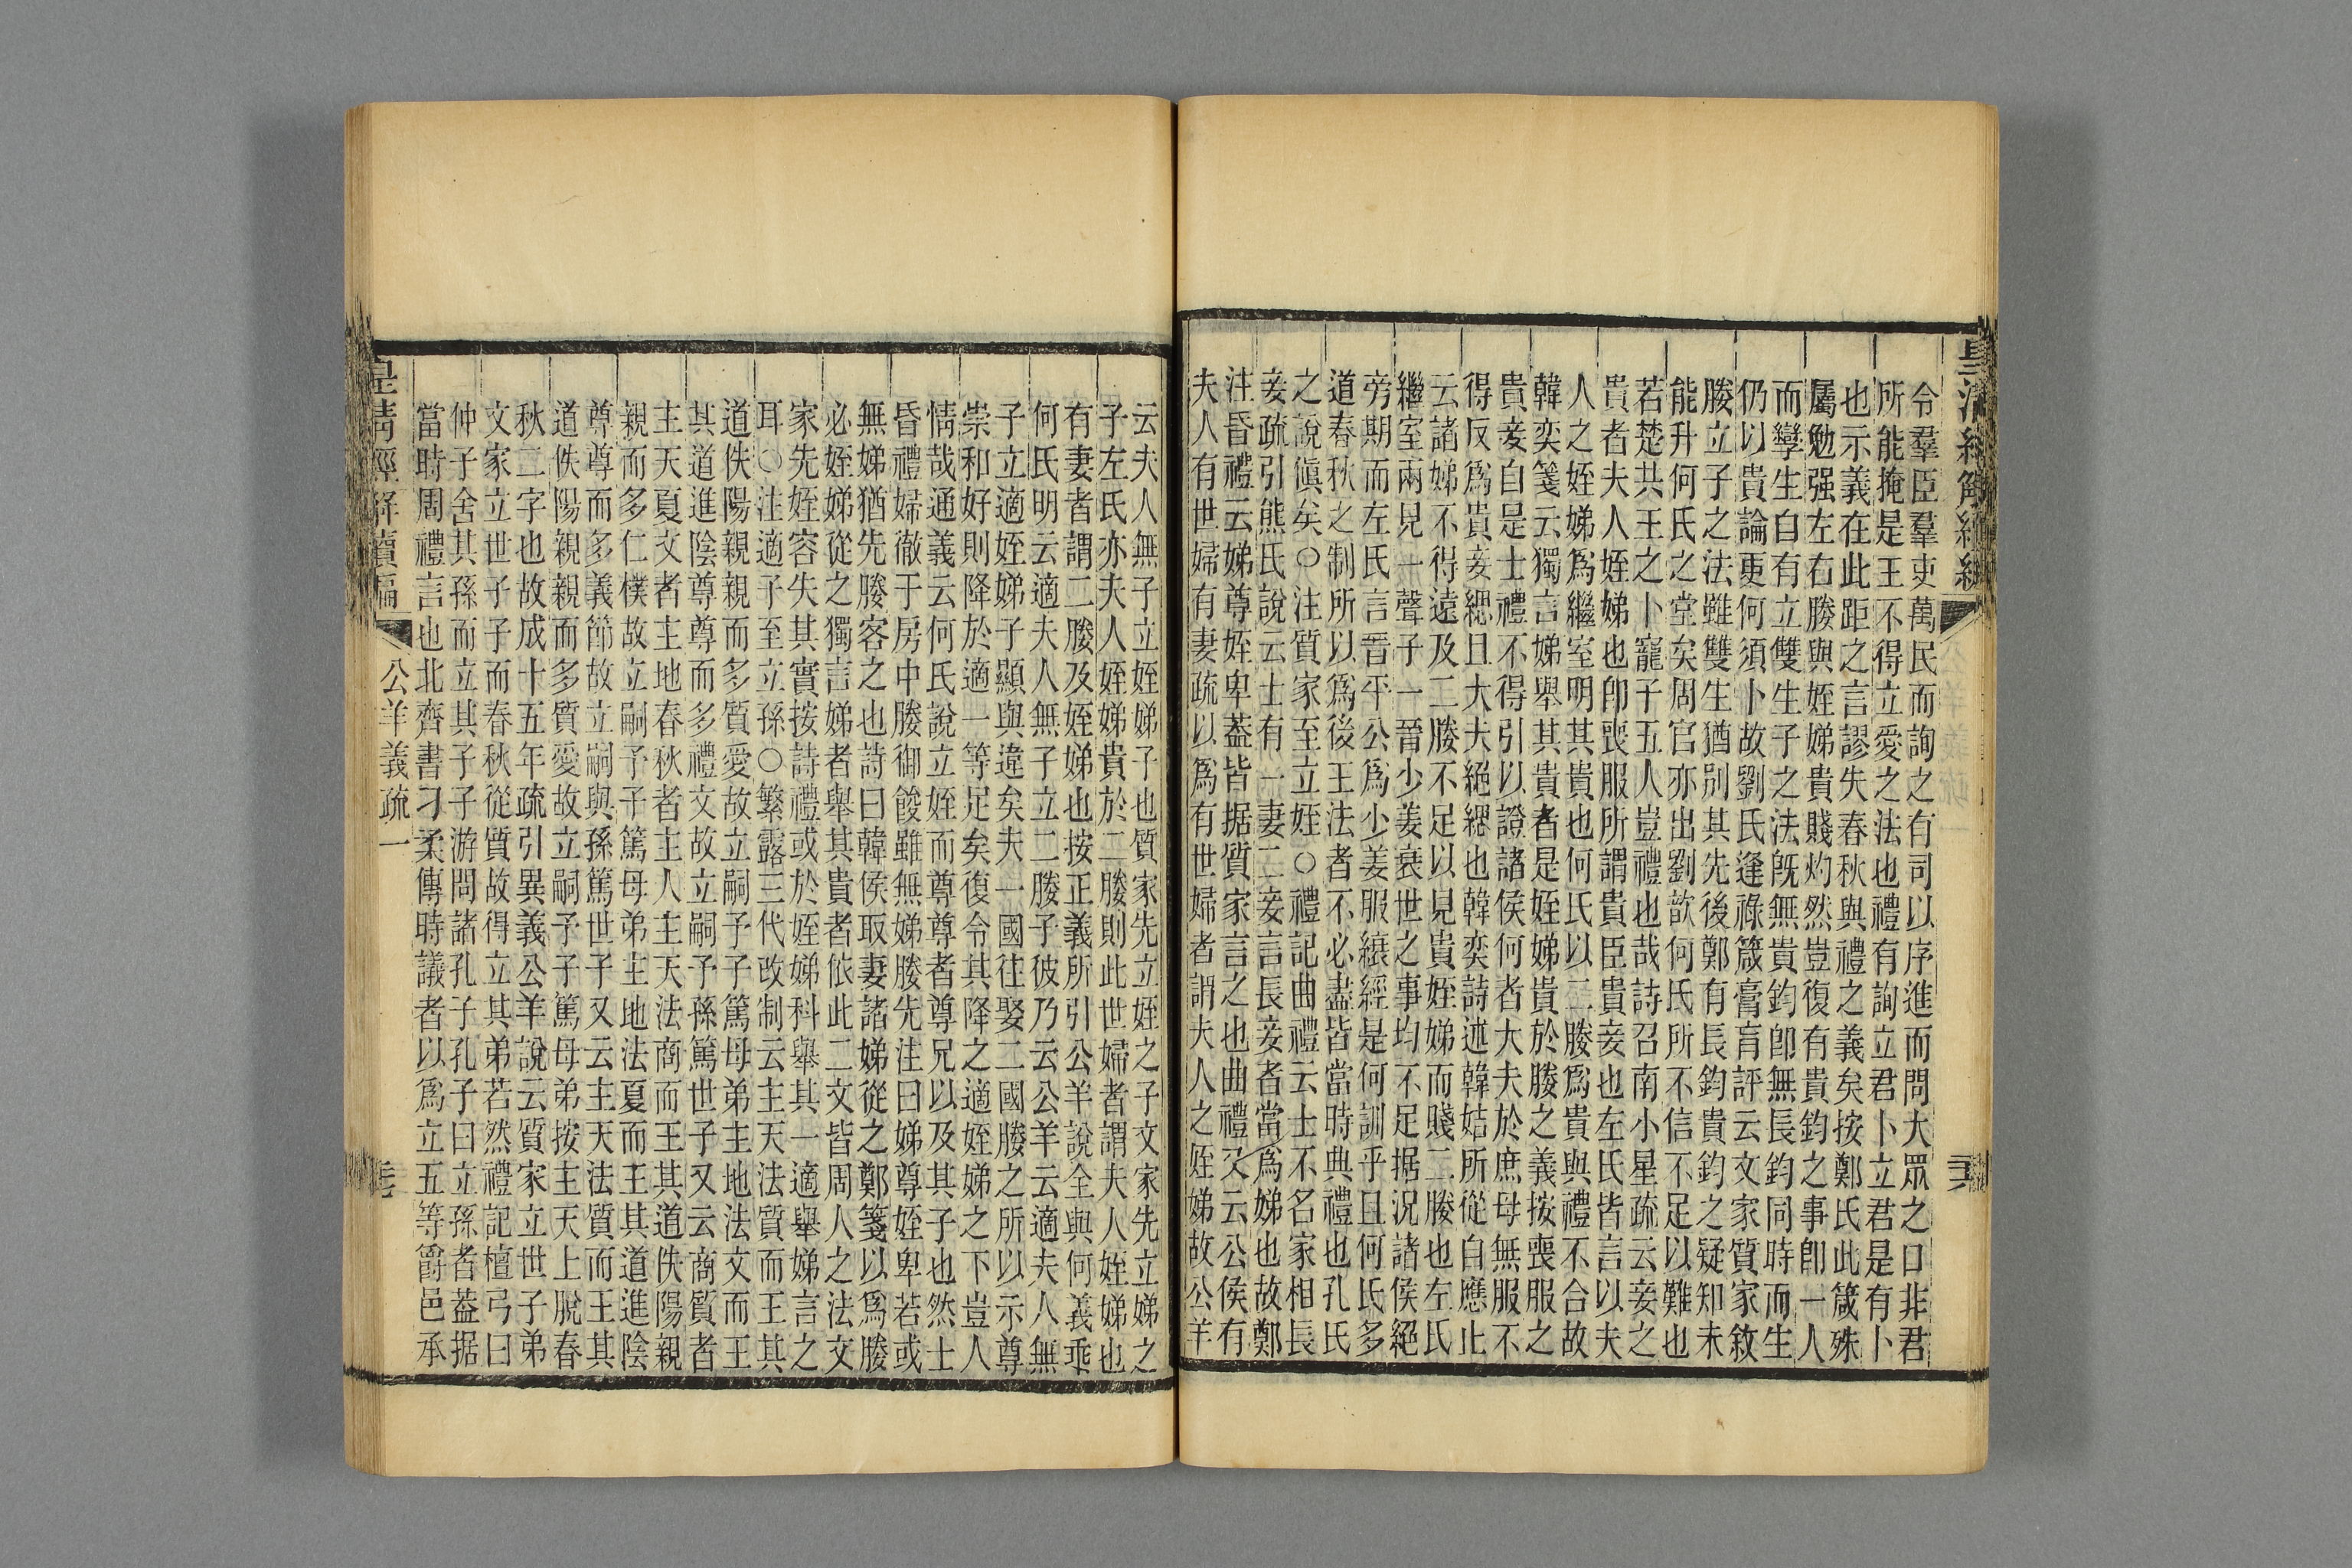 令羣臣羣吏萬民而詢之有司以序進而問大眾之口非君
所能掩是王不得立愛之法也禮有詢立君卜立君是有卜
也示義在此距之言謬失春秋與禮之義矣按鄭氏此箴殊
屬勉强左右媵與姪娣貴賤灼然豈復有貴鈞之事卽一人
而孿生自有立雙生子之法旣無貴鈞卽無長鈞同時而生
仍以貴論更何須卜故劉氏逢祿箴膏肓評云文家質家敘
媵立子之法雖雙生猶別其先後鄭有長鈞貴鈞之疑知未
能升何氏之堂矣周官亦出劉歆何氏所不信不足以難也
若楚共王之卜寵子五人豈禮也哉詩召南小星疏云妾之
貴者夫人姪娣也卽喪服所謂貴臣貴妾也左氏皆言以夫
人之姪娣爲繼室明其貴也何氏以二媵爲貴與禮不合故
韓奕箋云獨言娣舉其貴者是姪娣貴於媵之義按喪服之
貴妾自是士禮不得引以證諸侯何者大夫於庶母無服不
得反爲貴妾緦且大夫絕緦也韓奕詩述韓姞所從自應止
云諸娣不得遠及二媵不足以見貴姪娣而賤二媵也左氏
繼室兩見一聲子一晉少姜衰世之事均不足据況諸侯絕
旁期而左氏言晉平公爲少姜服縗絰是何訓乎且何氏多
道春秋之制所以爲後王法者不必盡皆當時典禮也孔氏
之說傎矣○注質家至立姪○禮記曲禮云士不名家相長
妾疏引熊氏說云士有一妻二妾言長妾者當爲娣也故鄭
注昏禮云娣尊姪卑葢皆据質家言之也曲禮又云公侯有
夫人有世婦有妻疏以爲有世婦者謂夫人之姪娣故公羊
云夫人無子立姪娣子也質家先立姪之子文家先立娣之
子左氏亦夫人姪娣貴於二媵則此世婦者謂夫人姪娣也
有妻者謂二媵及姪娣也按正義所引公羊說全與何義乖
何氏明云適夫人無子立二媵子彼乃云公羊云適夫人無
子立適姪娣子顯與違矣夫一國往娶二國媵之所以示尊
崇和好則降於適一等足矣復令其降之適姪娣之下豈人
情哉通義云何氏說立姪而尊尊者尊兄以及其子也然士
昏禮婦徹于房中媵御餕雖無娣媵先注曰娣尊姪卑若或
無娣猶先媵客之也詩曰韓侯取妻諸娣從之鄭箋以爲媵
必姪娣從之獨言娣者舉其貴者依此二文皆周人之法文
家先姪容失其實按詩禮或於姪娣科舉其一適舉娣言之
耳○注適子至立孫○繁露三代改制云主天法質而王其
道佚陽親親而多質愛故立嗣予子篤母弟主地法文而王
其道進陰尊尊而多禮文故立嗣予孫篤世子又云商質者
主天夏文者主地春秋者主人主天法商而王其道佚陽親
親而多仁樸故立嗣予子篤母弟主地法夏而王其道進陰
尊尊而多義節故立嗣與孫篤世子又云主天法質而王其
道佚陽親親而多質愛故立嗣予子篤母弟按主天上脫春
秋二字也故成十五年疏引異義公羊說云質家立世子弟
文家立世子子而春秋從質故得立其弟若然禮記檀弓曰
仲子舍其孫而立其子子游問諸孔子孔子曰立孫者葢据
當時周禮言也北齊書刁柔傳時議者以爲立五等爵邑承
皇淸經解續編
公羊義疏一